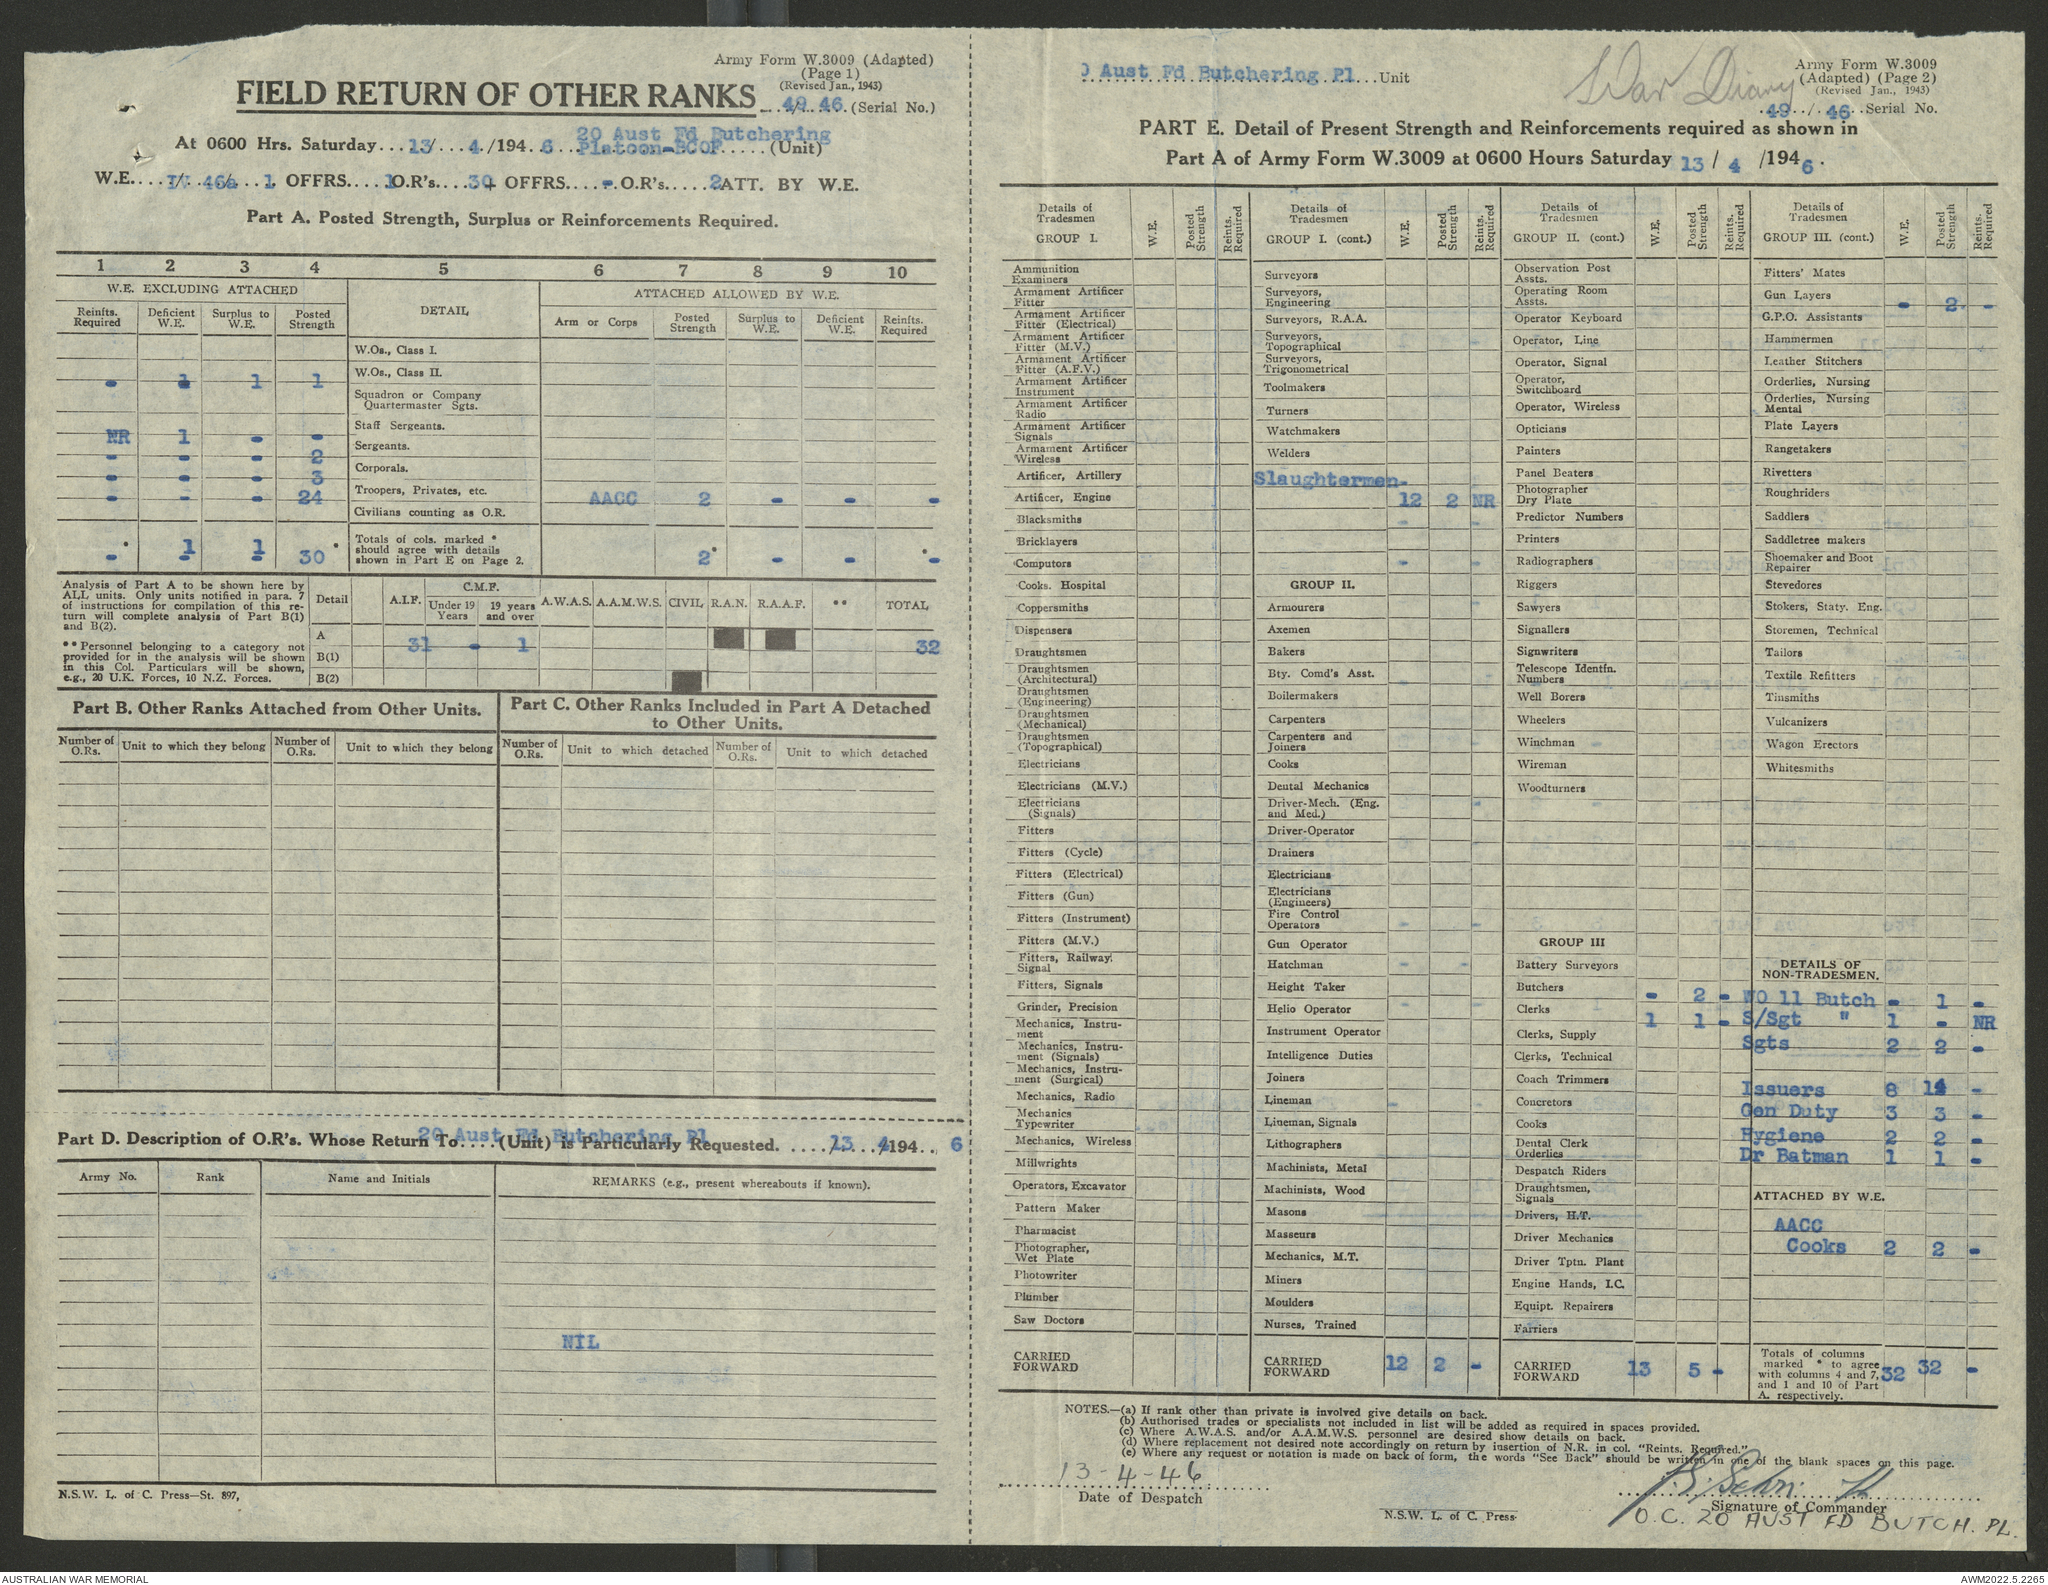 Army Form W.3009 (Adapted)
(Page 1)
(Revised Jan., 1943)
FIELD RETURN OF OTHER RANKS ..49/..46. (Serial No.)
At 0600 Hrs. Saturday...13/...4./194..6... 20 Aust Fd Butchering Platoon-BCOF.....(Unit)
W.E..../.46a/..1. OFFRS....1O.R's....30+ OFFRS....-.O.R's.....2ATT. BY W.E.
Part A. Posted Strength, Surplus or Reinforcements Required.
1 2 3 4 5 6 7 8 9 10
W.E. EXCLUDING ATTACHED DETAIL ATTACHED ALLOWED BY W.E.
Reinfts. Required Deficient W.E. Surplus to W.E. Posted Strength Arm or Corps Posted Strength Surplus to W.E. Deficient W.E. Reinfts. Required
W.Os., Class I.
W.Os., Class II.
- 1 1 1
Squadron or Company Quartermaster Sgts.
Staff Sergeants.
NR 1 - -
Sergeants.
- - - 2
Corporals.
- - - 3
Troopers, Privates, etc.
- - - 24 AACC 2 - - -
Civilians counting as O.R.
Totals of cols. marked * should agree with details shown in Part E on Page 2.
- 1 1 30 2 - - -
Analysis of Part A to be shown here by
ALL units. Only units notified in para. 7
of instructions for compilation of this re-
turn will complete analysis of Part B(1)
and B(2).
** Personnel belonging to a category not
provided for in the analysis will be shown
in this Col. Particulars will be shown,
e.g., 20 U.K. Forces, 10 N.Z. Forces.
Detail A.I.F. C.M.F. Under 19 Years 19 years and over A.W.A.S. A.A.M.W.S. CIVIL R.A.N. R.A.A.F. ** TOTAL
A 31 - 1 32
B(1)
B(2)
Part B. Other Ranks Attached from Other Units.
Part C. Other Ranks Included in Part A Detached to Other Units.
Number of O.Rs. Unit to which they belong Number of O.Rs. Unit to which they belong Number of O.Rs. Unit to which detached Number of O.Rs. Unit to which detached
Part D. Description of O.R's. Whose Return To 20 Aust Fd Butchering Pl (Unit) is Particularly Requested. ..../13./4/194.. 6
Army No. Rank Name and Initials REMARKS (e.g., present whereabouts if known).
NIL
N.S.W. L. of C. Press—St. 897,
0 Aust Fd Butchering Pl...Unit
War Diary
Army Form W.3009
(Adapted) (Page 2)
(Revised Jan., 1943)
.49../.46..Serial No.
PART E. Detail of Present Strength and Reinforcements required as shown in
Part A of Army Form W.3009 at 0600 Hours Saturday 13 / 4 /1946.
Details of Tradesmen GROUP I. W.E. Posted Strength Reints. Required
Ammunition Examiners
Armament Artificer Fitter
Armament Artificer Fitter (Electrical)
Armament Artificer Fitter (M.V.)
Armament Artificer Fitter (A.F.V.)
Armament Artificer Instrument
Armament Artificer Radio
Armament Artificer Signals
Armament Artificer Wireless
Artificer, Artillery
Artificer, Engine
Blacksmiths
Bricklayers
Computors
Cooks. Hospital
Coppersmiths
Dispensers
Draughtsmen
Draughtsmen (Architectural)
Draughtsmen (Engineering)
Draughtsmen (Mechanical)
Draughtsmen (Topographical)
Electricians
Electricians (M.V.)
Electricians (Signals)
Fitters
Fitters (Cycle)
Fitters (Electrical)
Fitters (Gun)
Fitters (Instrument)
Fitters (M.V.)
Fitters, Railway Signal
Fitters, Signals
Grinder, Precision
Mechanics, Instru-ment
Mechanics, Instru-ment (Signals)
Mechanics, Instru-ment (Surgical)
Mechanics, Radio
Mechanics Typewriter
Mechanics, Wireless
Millwrights
Operators, Excavator
Pattern Maker
Pharmacist
Photographer, Wet Plate
Photowriter
Plumber
Saw Doctors
CARRIED FORWARD
Details of Tradesmen GROUP I. (cont.) W.E. Posted Strength Reints. Required
Surveyors
Surveyors, Engineering
Surveyors, R.A.A.
Surveyors, Topographical
Surveyors, Trigonometrical
Toolmakers
Turners
Watchmakers
Welders
Slaughtermen 12 2 NR
GROUP II.
Armourers
Axemen
Bakers
Bty. Comd's Asst.
Boilermakers
Carpenters
Carpenters and Joiners
Cooks
Dental Mechanics
Driver-Mech. (Eng. and Med.)
Driver-Operator
Drainers
Electricians
Electricians (Engineers)
Fire Control Operators
Gun Operator
Hatchman
Height Taker
Helio Operator
Instrument Operator
Intelligence Duties
Joiners
Lineman
Lineman, Signals
Lithographers
Machinists, Metal
Machinists, Wood
Masons
Masseurs
Mechanics, M.T.
Miners
Moulders
Nurses, Trained
CARRIED FORWARD 12 2 -
Details of Tradesmen GROUP II. (cont.) W.E. Posted Strength Reints. Required
Observation Post Assts.
Operating Room Assts.
Operator Keyboard
Operator, Line
Operator, Signal
Operator, Switchboard
Operator, Wireless
Opticians
Painters
Panel Beaters
Photographer Dry Plate
Predictor Numbers
Printers
Radiographers
Riggers
Sawyers
Signallers
Signwriters
Telescope Identfn. Numbers
Well Borers
Wheelers
Winchman
Wireman
Woodturners
GROUP III
Battery Surveyors
Butchers - 2 -
Clerks 1 1 -
Clerks, Supply
Clerks, Technical
Coach Trimmers
Concretors
Cooks
Dental Clerk Orderlies
Despatch Riders
Draughtsmen, Signals
Drivers, H.T.
Driver Mechanics
Driver Tptn. Plant
Engine Hands, I.C.
Equipt. Repairers
Farriers
CARRIED FORWARD 13 5 -
Details of Tradesmen GROUP III. (cont.) W.E. Posted Strength Reints. Required
Fitters' Mates
Gun Layers - 2 -
G.P.O. Assistants
Hammermen
Leather Stitchers
Orderlies, Nursing
Orderlies, Nursing Mental
Plate Layers
Rangetakers
Rivetters
Roughriders
Saddlers
Saddletree makers
Shoemaker and Boot Repairer
Stevedores
Stokers, Staty. Eng.
Storemen, Technical
Tailors
Textile Refitters
Tinsmiths
Vulcanizers
Wagon Erectors
Whitesmiths
DETAILS OF NON-TRADESMEN.
WO 11 Butch - 1 -
S/Sgt " 1 - NR
Sgts 2 2 -
Issuers 8 14 -
Gen Duty 3 3 -
Hygiene 2 2 -
Dr Batman 1 1 -
ATTACHED BY W.E.
AACC
Cooks 2 2 -
Totals of columns marked * to agree with columns 4 and 7, and 1 and 10 of Part A. respectively. 32 32 -
NOTES.—(a) If rank other than private is involved give details on back.
(b) Authorised trades or specialists not included in list will be added as required in spaces provided.
(c) Where A.W.A.S. and/or A.A.M.W.S. personnel are desired show details on back.
(d) Where replacement not desired note accordingly on return by insertion of N.R. in col. "Reints. Required."
(e) Where any request or notation is made on back of form, the words "See Back" should be written in one of the blank spaces on this page.
13-4-46
Date of Despatch
N.S.W. L. of C. Press
Signature of Commander
O.C. 20 AUST FD BUTCH. PL.
AUSTRALIAN WAR MEMORIAL
AWM2022.5.2265